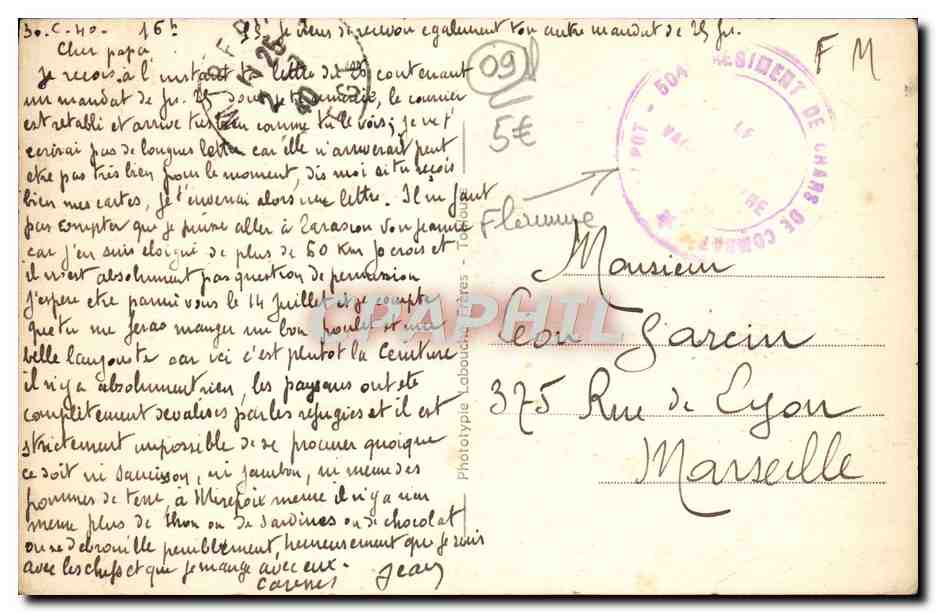 30.6.40. 16h
Je viens de recevoir également ton autre mandat de 25 frs.
Cher papa
Je reçois à l'instant ta lettre du 26 contenant
un mandat de frs. 25 dont je te remercie, le courrier
est retabli et arrive très bien comme tu le vois; je ne t'
écrirai pas de longues lettres car elle n'arriverait peut
etre pas très bien pour le moment, dis moi si tu reçois
bien mes cartes, je t'enverai alors une lettre. Il ne faut
pas compter que je puisse aller à Tarascon voir Jeanne
car j'en suis eloigné de plus de 60 Km je crois et
il n'est absolument pas question de permission
J'espere etre parmi vous le 14 Juillet et je compte
que tu me feras manger un bon poulet et une
belle langouste car ici c'est plutot la Ceinture
il n'y a absolument rien, les paysans ont ete
completement devalises par les refugies et il est
strictement impossible de se procurer quoique
ce soit ni saucisson, ni jambon, ni meme des
pommes de terre, à Mirepoix meme il n'y a
meme plus de thon ou de sardines ou de chocolat
on se debrouille peniblement, heureusement que je suis
avec les chefs et que je mange avec eux.
Caresses Jean
Phototypie Labouche Frères - Toulouse
09
5€
F M
504 REGIMENT DE CHARS DE COMBAT
Monsieur
Leon Garcin
375 Rue de Lyon
Marseille
CPAPHIL